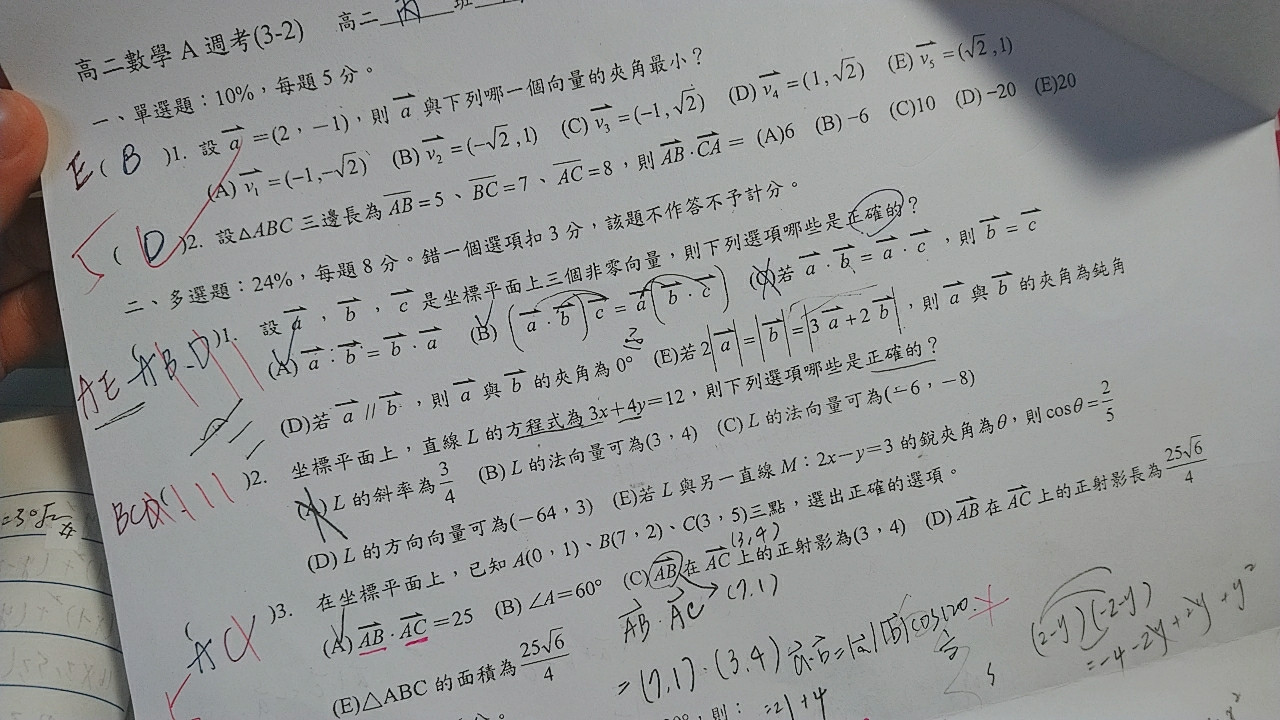 高二數學 A 週考(3-2) 高二 丙 班
一、單選題：10%，每題 5 分。
E ( B )1. 設 a =(2，−1)，則 a 與下列哪一個向量的夾角最小？
(A) v₁ =(−1,−√2) (B) v₂ =(−√2,1) (C) v₃ =(−1,√2) (D) v₄ =(1,√2) (E) v₅ =(√2,1)
( D )2. 設△ABC 三邊長為 AB=5、BC=7、AC=8，則 AB·CA = (A)6 (B) −6 (C)10 (D) −20 (E)20
二、多選題：24%，每題 8 分。錯一個選項扣 3 分，該題不作答不予計分。
AE ( AB D )1. 設 a，b，c 是坐標平面上三個非零向量，則下列選項哪些是正確的？
(A) a·b = b·a (B) (a·b)c = a(b·c) (C)若 a·b = a·c，則 b = c
(D)若 a // b，則 a 與 b 的夾角為 0° (E)若 2|a|=|b|=|3a+2b|，則 a 與 b 的夾角為鈍角
BC ( )2. 坐標平面上，直線 L 的方程式為 3x+4y=12，則下列選項哪些是正確的？
(A) L 的斜率為 3/4 (B) L 的法向量可為(3，4) (C) L 的法向量可為(−6，−8)
(D) L 的方向向量可為(−64，3) (E)若 L 與另一直線 M：2x−y=3 的銳夾角為θ，則 cosθ=2/5
( A C )3. 在坐標平面上，已知 A(0，1)、B(7，2)、C(3，5)三點，選出正確的選項。
(3,4)
(A) AB·AC=25 (B) ∠A=60° (C) AB 在 AC 上的正射影為(3，4) (D) AB 在 AC 上的正射影長為 25√6/4
(7,1)
AB·AC
(E)△ABC 的面積為 25√6/4
=(7,1)·(3,4) a·b=|a||b|cos120
=21+4
(2-y)(-2-y)
=-4-2y+2y+y²